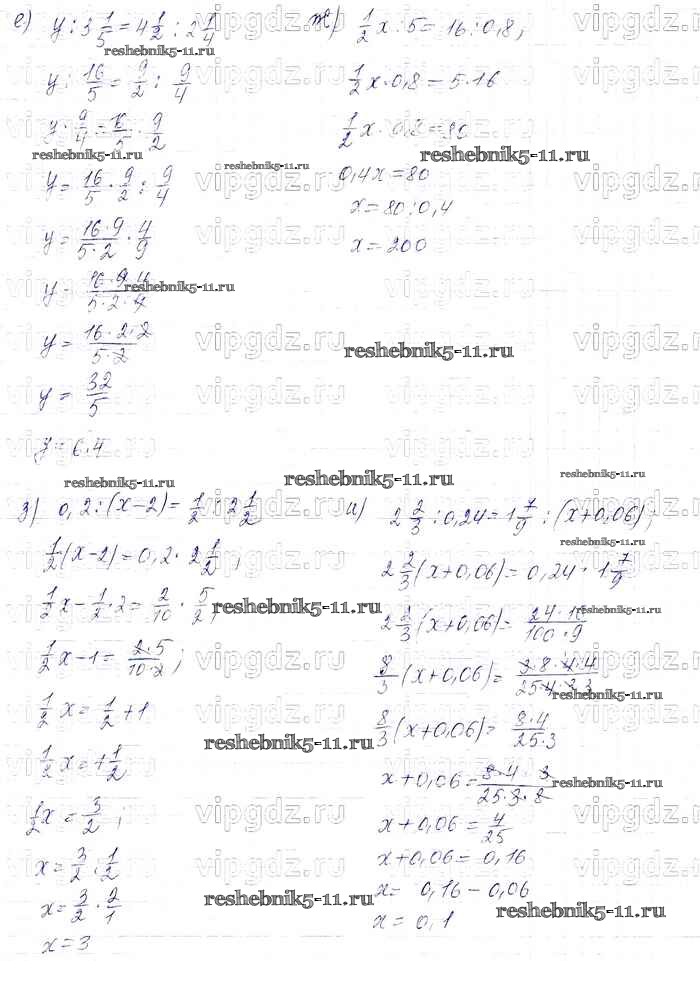 е) y : 3 1/5 = 4 1/2 : 2 1/4
y : 16/5 = 9/2 : 9/4
y · 9/4 = 16/5 · 9/2
y = 16/5 · 9/2 : 9/4
y = 16·9/5·2 · 4/9
y = 16·9·4/5·2·9
y = 16·2·2/5·2
y = 32/5
y = 6.4
ж) 1/2 x : 5 = 16 : 0,8,
1/2 x · 0,8 = 5·16
1/2 x · 0,8 = 80
0,4x = 80
x = 80 : 0,4
x = 200
з) 0,2 : (x-2) = 1/2 : 2 1/2
1/2 (x-2) = 0,2 · 2 1/2 ;
1/2 x - 1/2 · 2 = 2/10 · 5/2
1/2 x - 1 = 2·5/10·2 ;
1/2 x = 1/2 + 1
1/2 x = 1 1/2
1/2 x = 3/2 ;
x = 3/2 : 1/2
x = 3/2 · 2/1
x = 3
и) 2 2/3 : 0,24 = 1 7/9 : (x+0,06) ;
2 2/3 (x+0,06) = 0,24 · 1 7/9
2 2/3 (x+0,06) = 24·16/100·9
8/3 (x+0,06) = 3·8·4·4/25·4·3·3
8/3 (x+0,06) = 8·4/25·3
x+0,06 = 8·4·3/25·3·8
x+0,06 = 4/25
x+0,06 = 0,16
x = 0,16 - 0,06
x = 0,1
vipgdz.ru
reshebnik5-11.ru